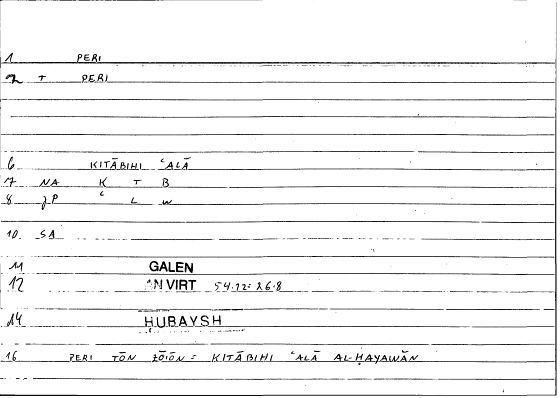 1 PERI
2 T PERI
6 KITĀBIHI ʿALĀ
7 NA K T B
8 JP ʿ L W
10. SA
11 GALEN
12 AN VIRT 54.12: 26.8
14 ḤUBAYSH
16 PERI TŌN ZŌIŌN = KITĀBIHI ʿALĀ AL-ḤAYAWĀN